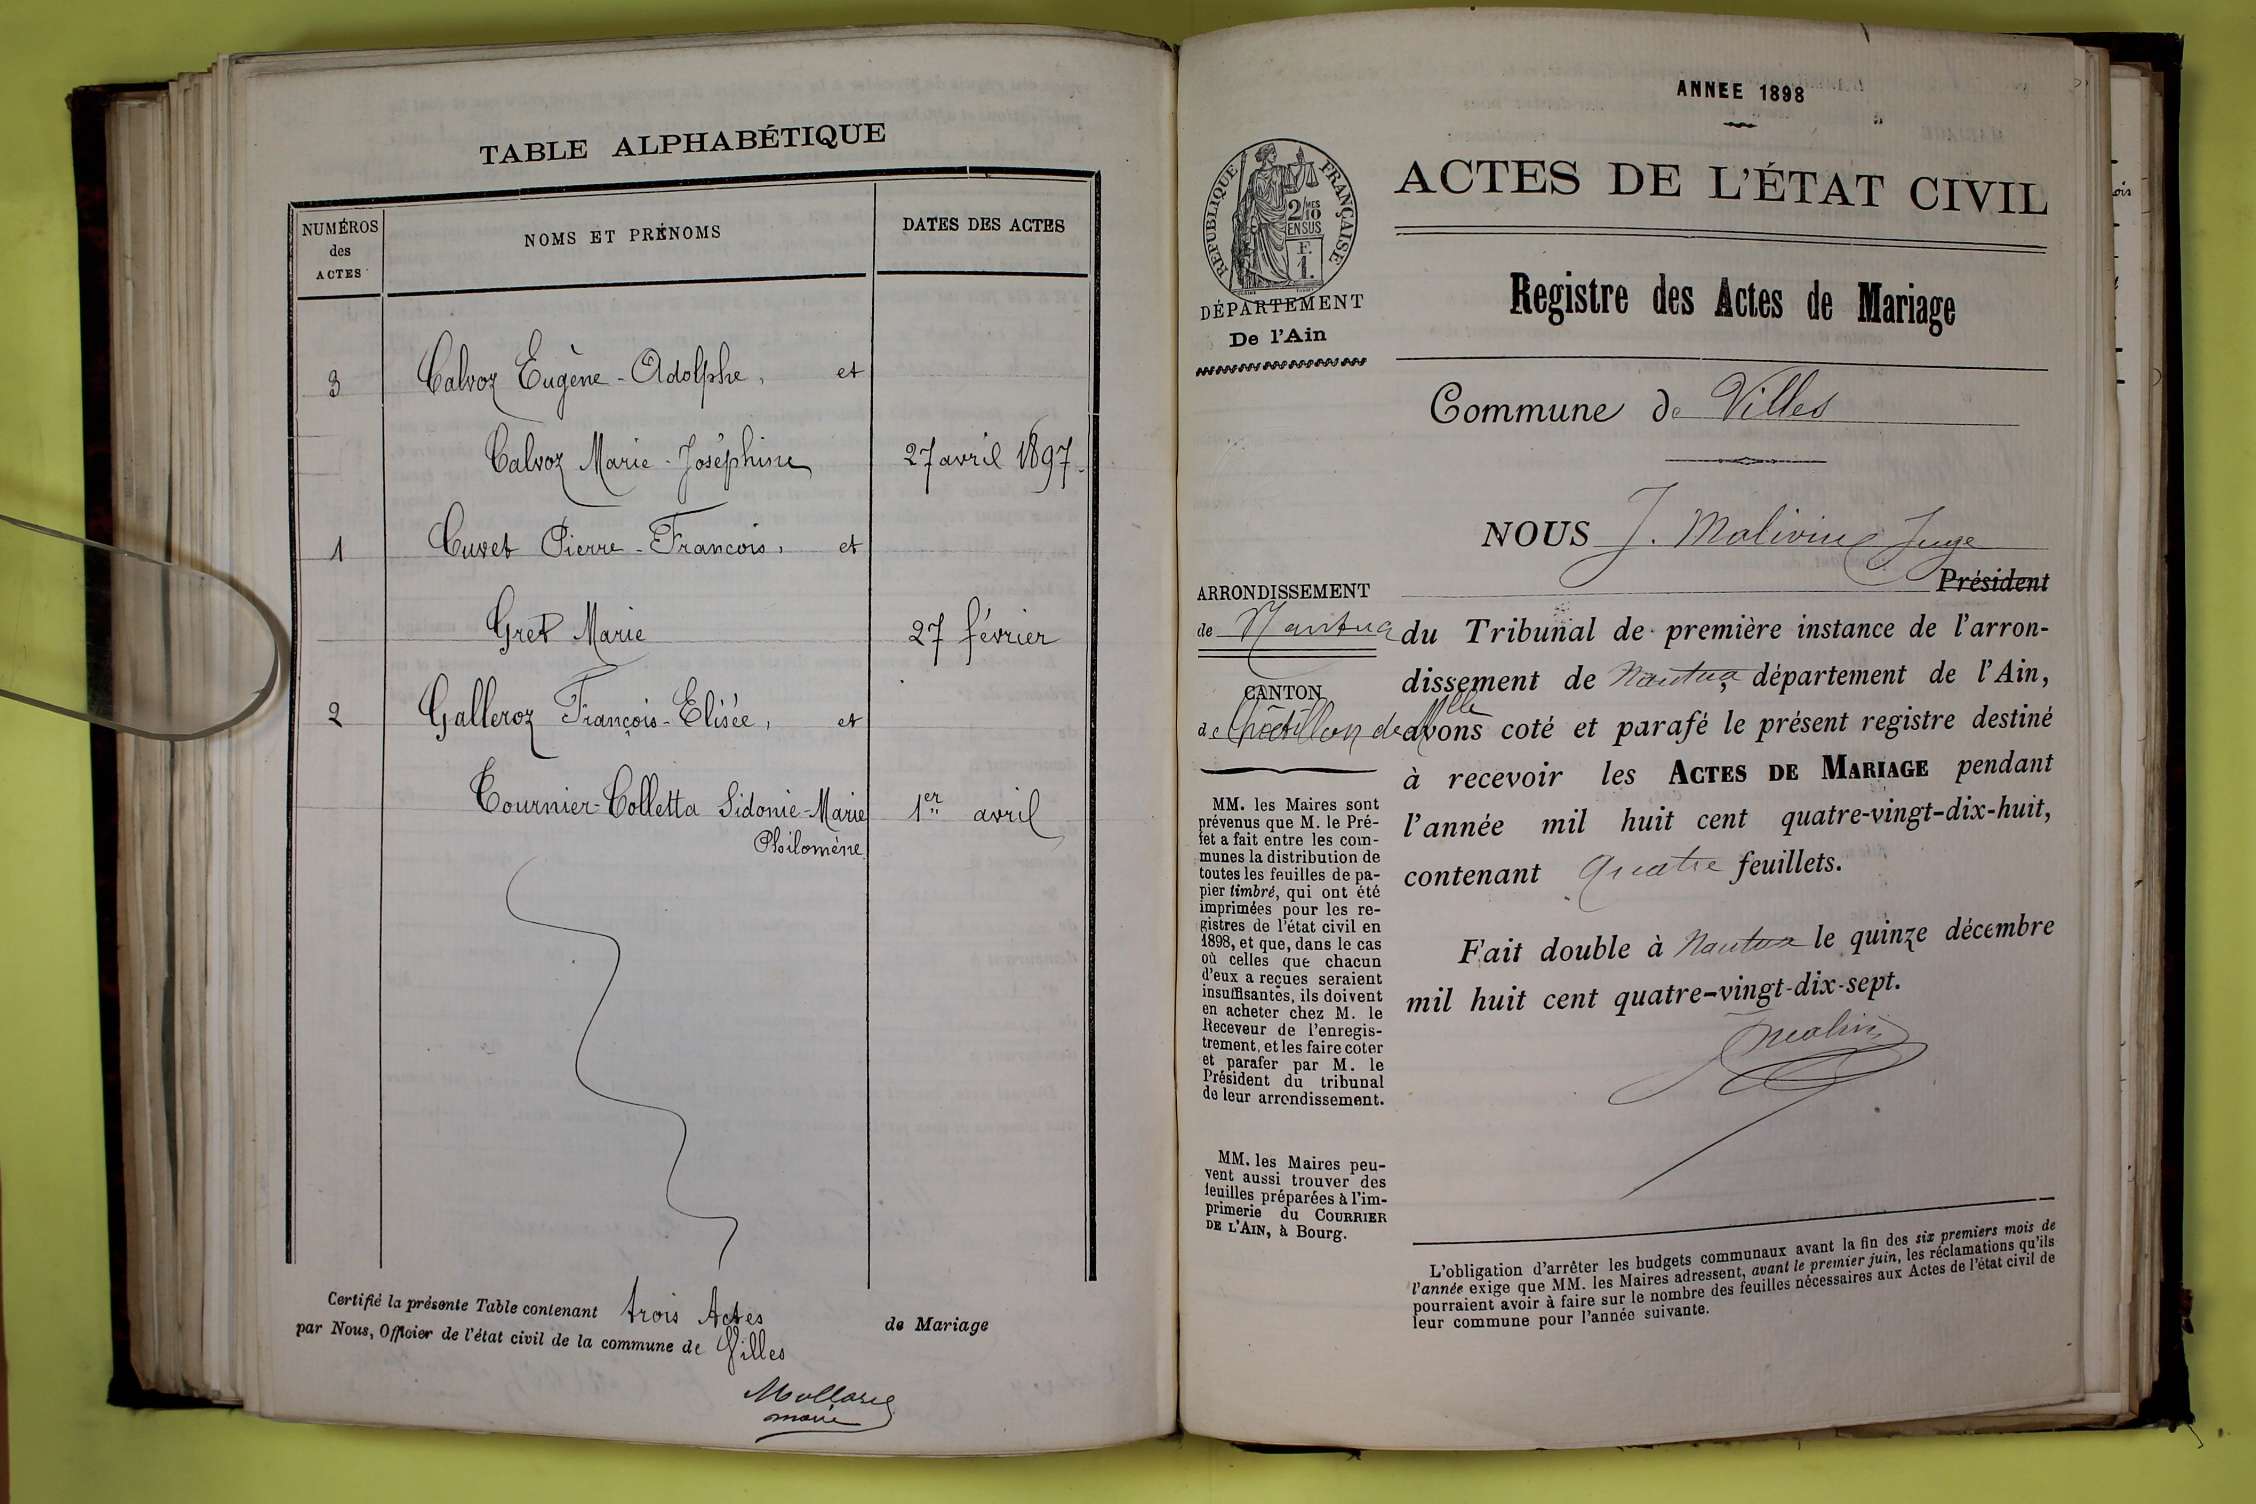 TABLE ALPHABÉTIQUE
NUMÉROS
des
ACTES
NOMS ET PRÉNOMS
DATES DES ACTES
3 Calvoz Eugène-Adolphe, et
Calvoz Marie-Joséphine 27 avril 1897
1 Cuvet Pierre-François, et
Gret Marie 27 février
2 Galleroz François-Elisée, et
Tournier-Colletta Sidonie-Marie 1er avril
Philomène
Certifié la présente Table contenant trois Actes de Mariage
par Nous, Officier de l'état civil de la commune de Villes
maire
ANNEE 1898
RÉPUBLIQUE FRANÇAISE
2/10 MES
EN SUS
F.
1.
DÉPARTEMENT
De l'Ain
ACTES DE L'ÉTAT CIVIL
Registre des Actes de Mariage
Commune de Villes
ARRONDISSEMENT
de Nantua
CANTON
de Châtillon de Mlle
MM. les Maires sont
prévenus que M. le Pré-
fet a fait entre les com-
munes la distribution de
toutes les feuilles de pa-
pier timbré, qui ont été
imprimées pour les re-
gistres de l'état civil en
1898, et que, dans le cas
où celles que chacun
d'eux a reçues seraient
insuffisantes, ils doivent
en acheter chez M. le
Receveur de l'enregis-
trement, et les faire coter
et parafer par M. le
Président du tribunal
de leur arrondissement.
MM. les Maires peu-
vent aussi trouver des
feuilles préparées à l'im-
primerie du COURRIER
DE L'AIN, à Bourg.
NOUS J. Malivin Juge
Président
du Tribunal de première instance de l'arron-
dissement de Nantua, département de l'Ain,
avons coté et parafé le présent registre destiné
à recevoir les ACTES DE MARIAGE pendant
l'année mil huit cent quatre-vingt-dix-huit,
contenant Quatre feuillets.
Fait double à Nantua le quinze décembre
mil huit cent quatre-vingt-dix-sept.
L'obligation d'arrêter les budgets communaux avant la fin des six premiers mois de
l'année exige que MM. les Maires adressent, avant le premier juin, les réclamations qu'ils
pourraient avoir à faire sur le nombre des feuilles nécessaires aux Actes de l'état civil de
leur commune pour l'année suivante.